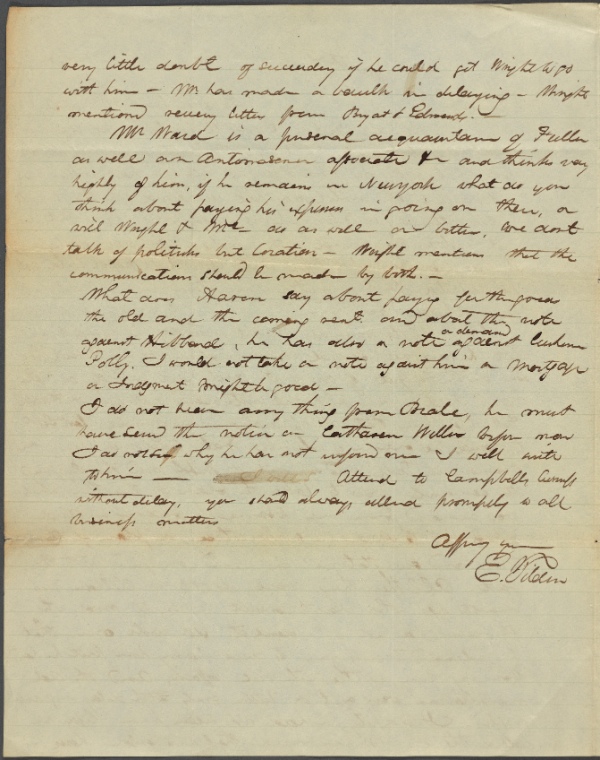 very little doubt of succeeding if he could get Wright to go
with him — Mr has made a in delaying — Wright
mentioned letter from & Edmonds. —
Mr Ward is a personal acquaintance of Fuller
as well as an associate & and thinks very
highly of him, if he remains in Newyork what do you
think about paying his expenses in going on there, or
will Wright & do as well or better, we dont
talk of politicks but location — Wright mentions that the
communications should be made by both. —
What does Haven say about paying for the goods
the old and the coming rent. and about the note
against Hibbard, he has also a note or demand against
Polly. I would not take a note against him a Mortgage
or Judgment might be good —
I do not hear any thing from Beale, he must
have send the notice on before now
I do not why he has not me I will write
to him — Attend to Campbells
without delay, you should always attend promptly to all
business matters
Affy yours
E. Tilden